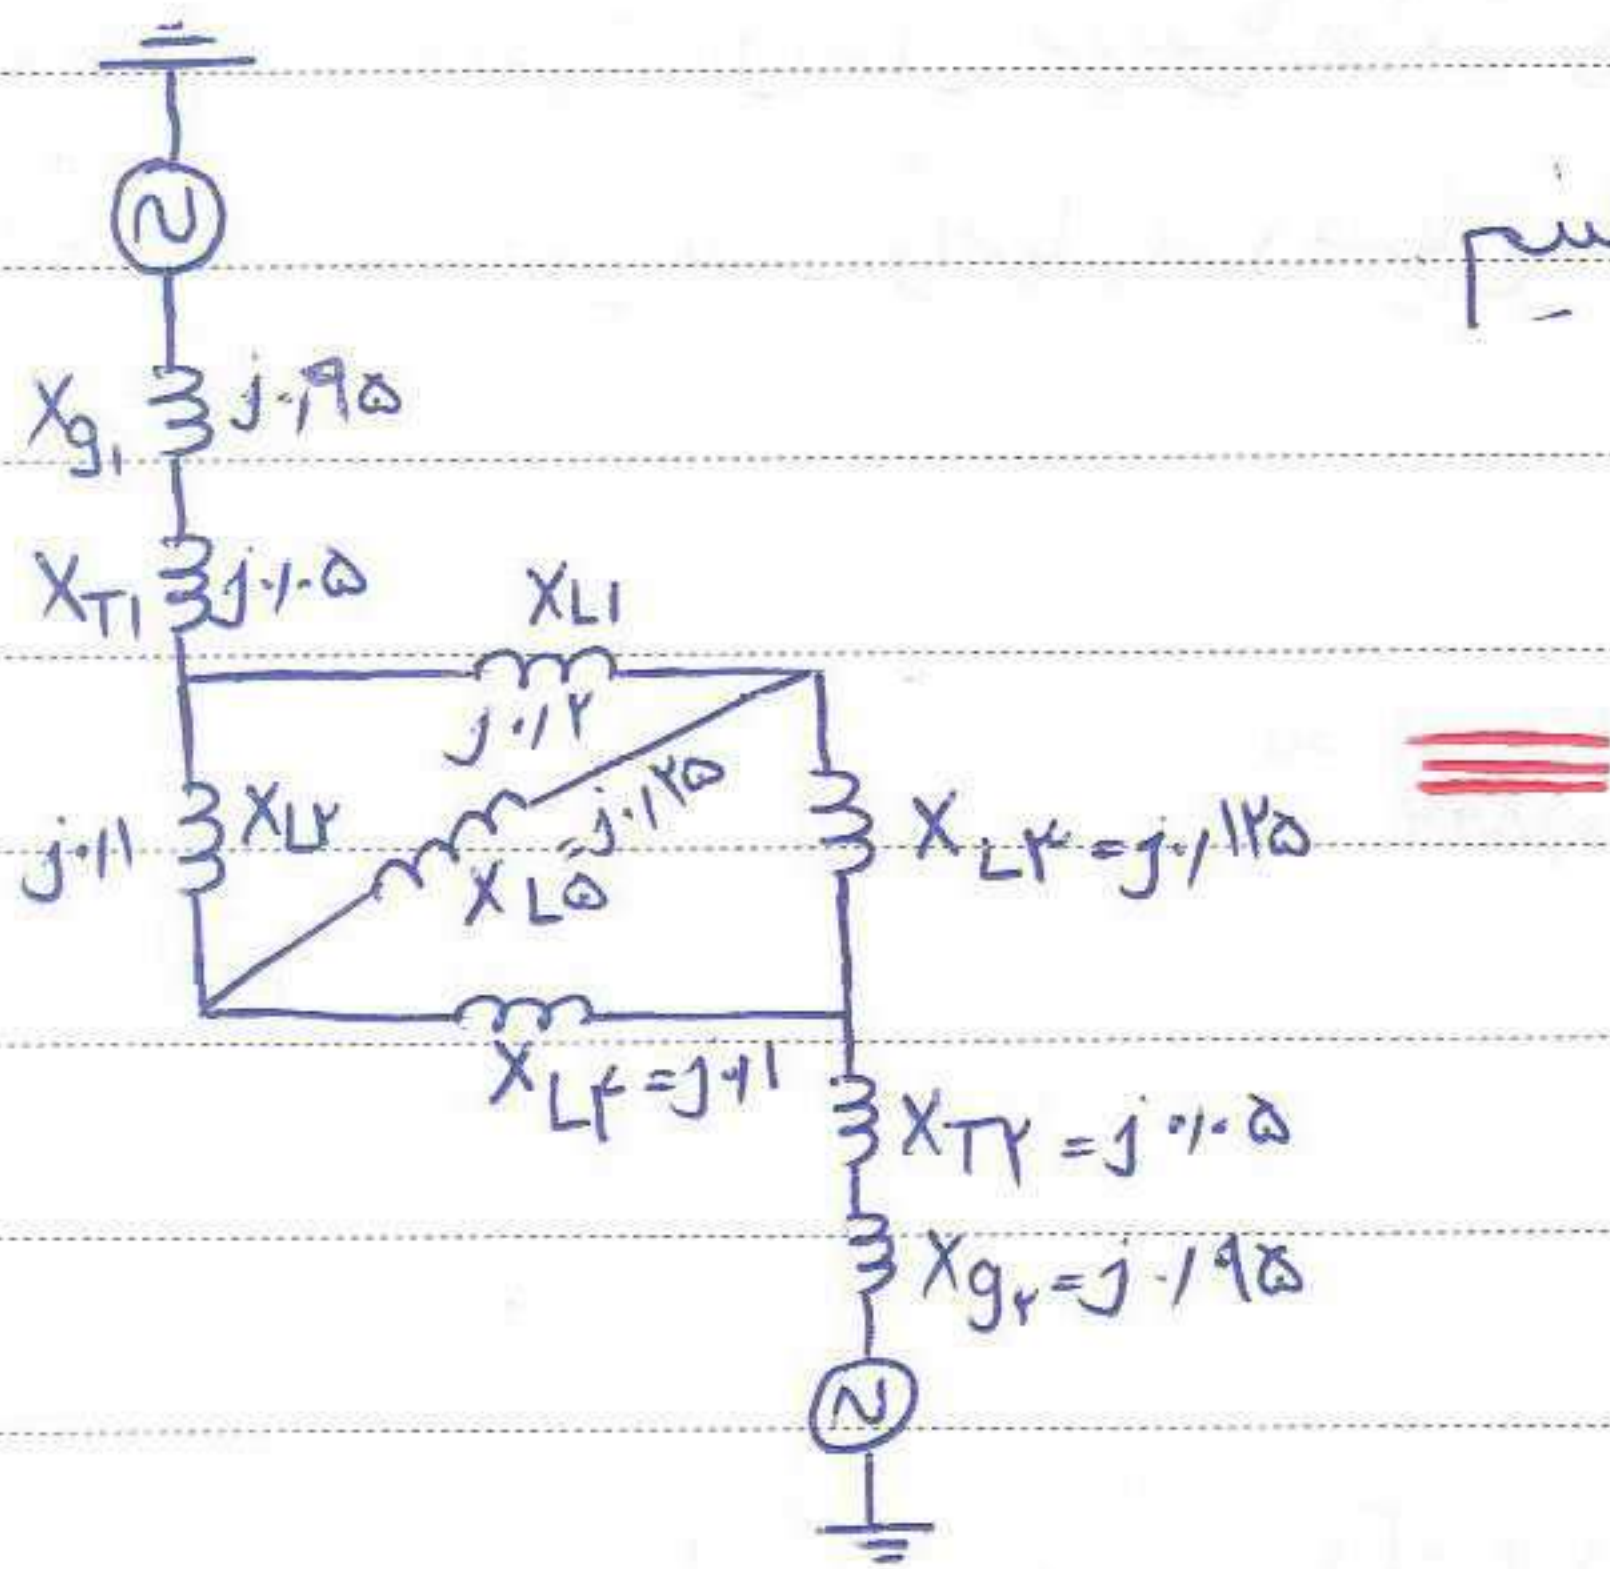 X_g۱ j۰,۹۵
X_T۱ j۰,۰۵
X_L۱
j۰,۲
j۰,۱ X_L۲
X_L۵ = j۰,۲۵
X_L۳ = j۰,۱۲۵
X_L۴ = j۰,۱
X_T۲ = j۰,۰۵
X_g۲ = j۰,۹۵